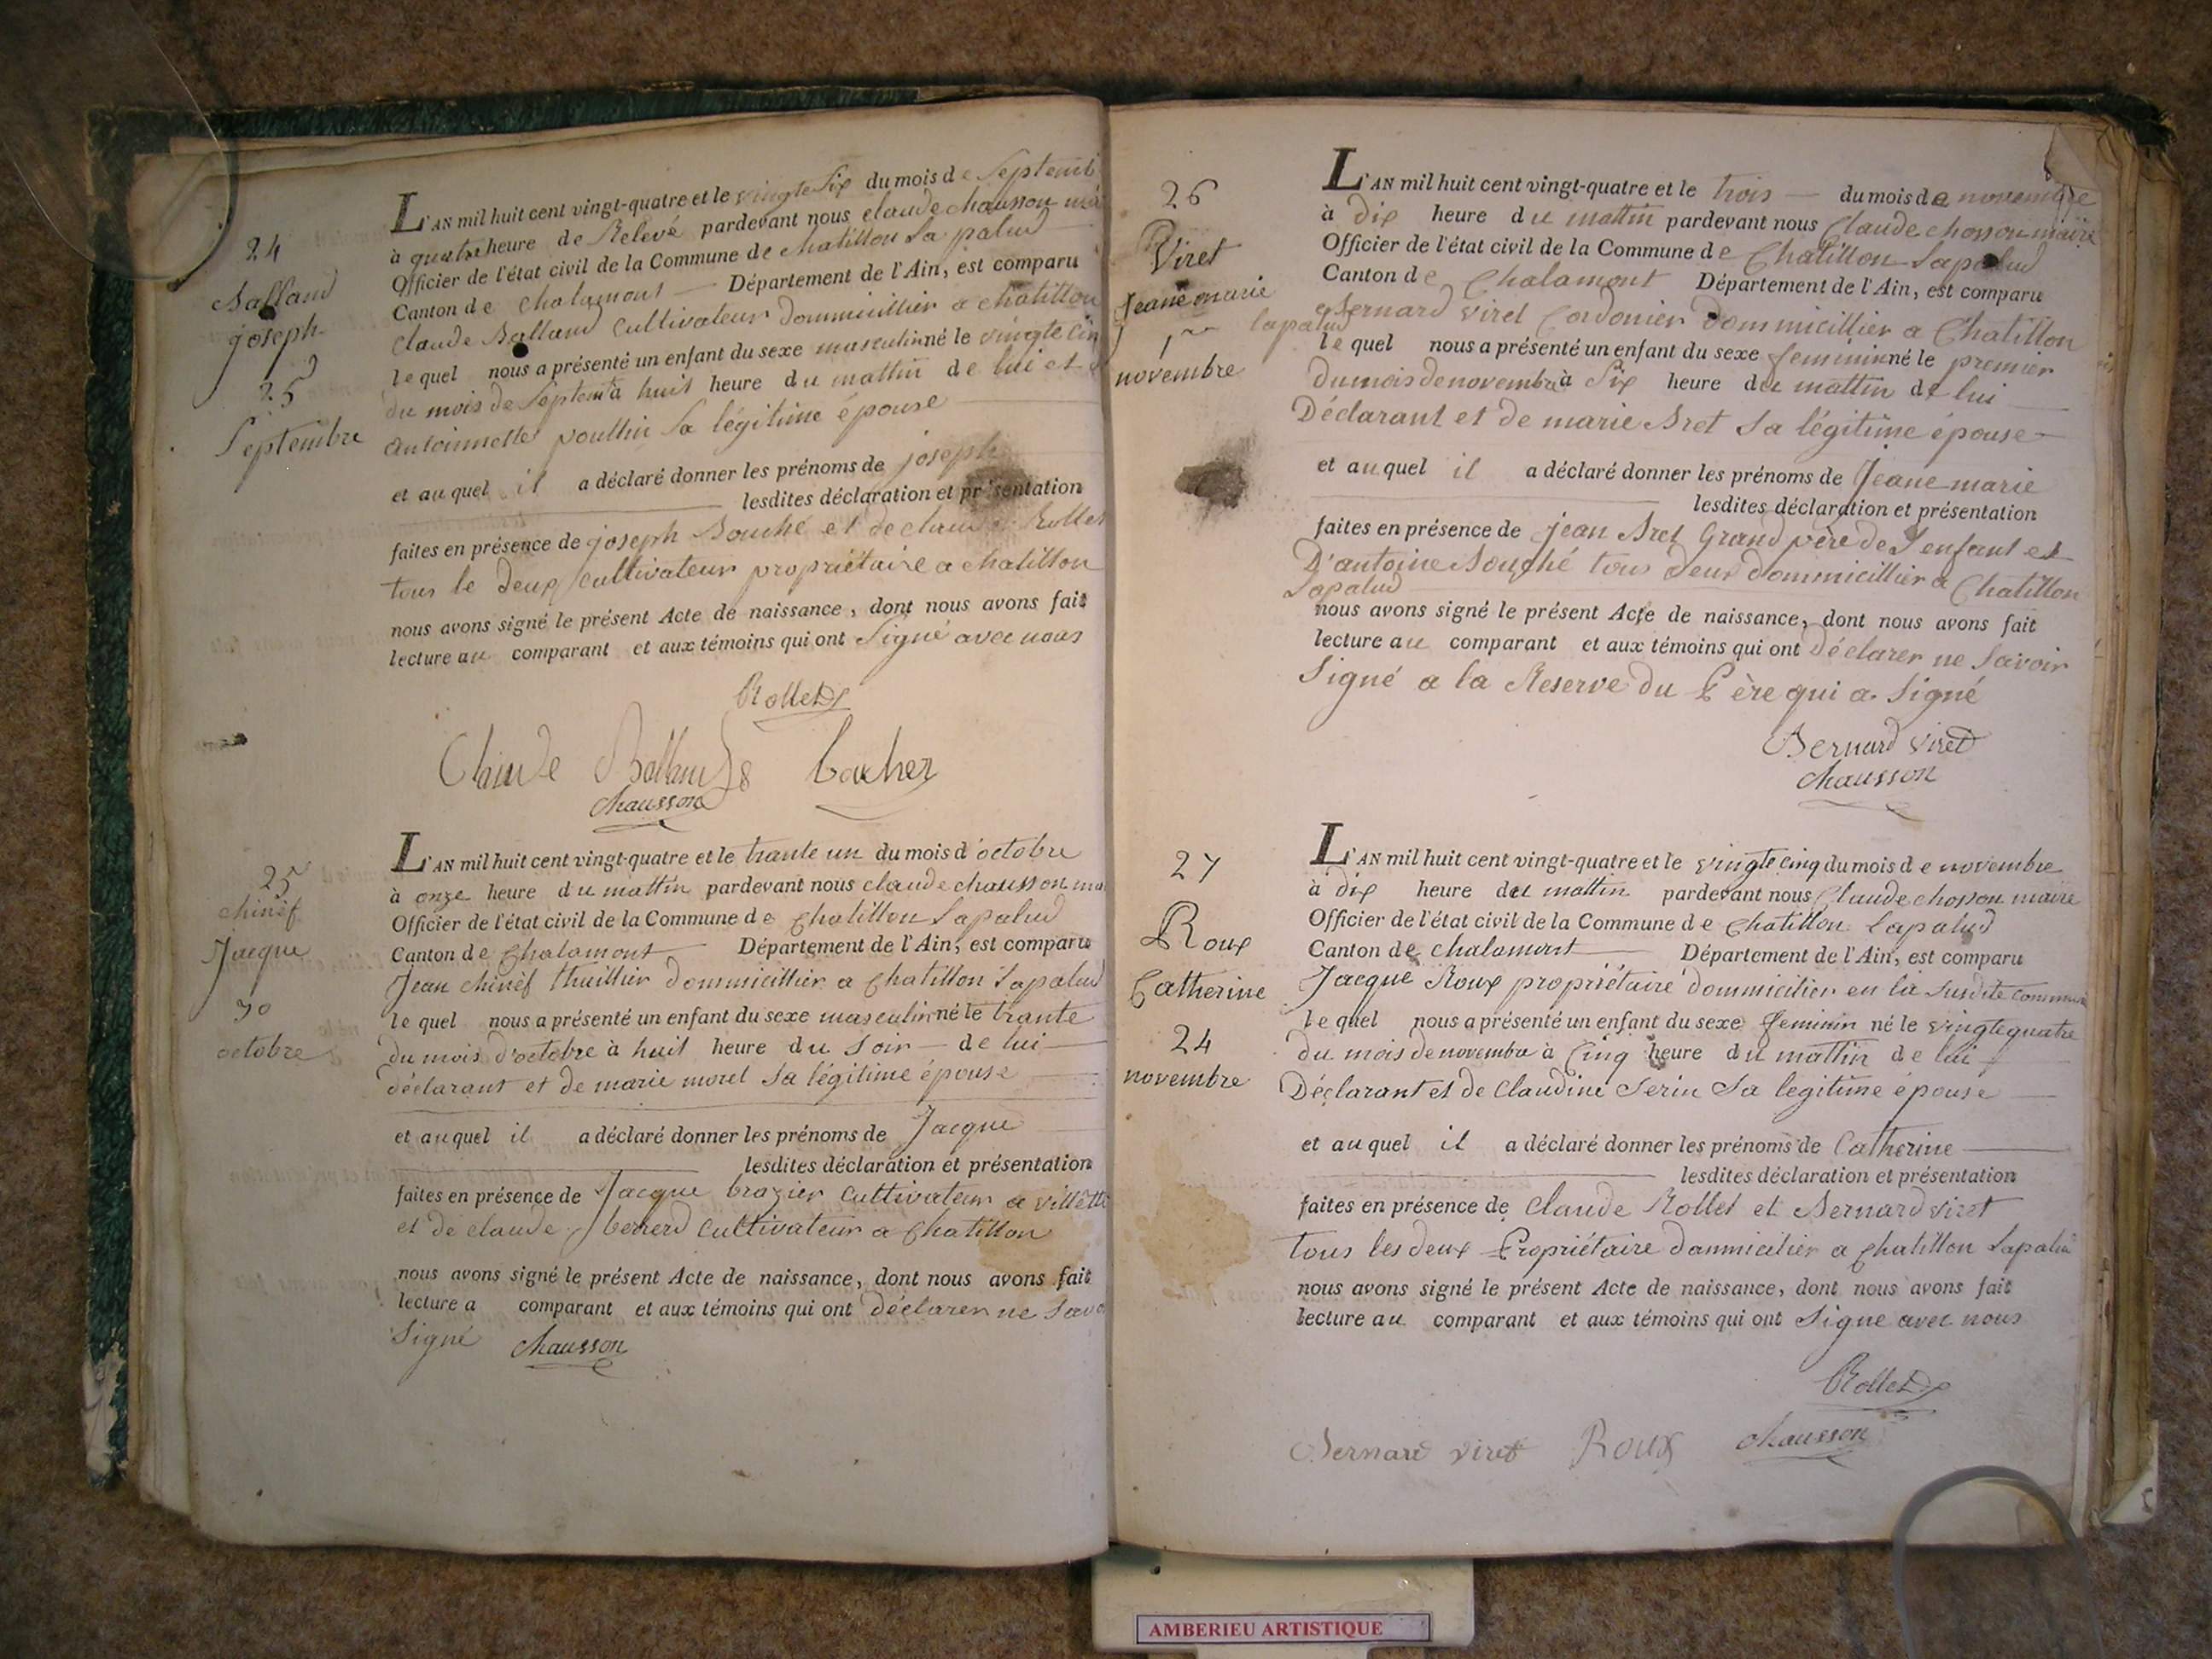 24
Balland
joseph
25
Septembre
L'AN mil huit cent vingt-quatre et le vingte Six du mois de Septemb
à quatre heure de Relevé pardevant nous claude chausson
Officier de l'état civil de la Commune de chatillon La palud
Canton de chalamont Département de l'Ain, est comparu
claude Balland Cultivateur dommicillier a chatillon
lequel nous a présenté un enfant du sexe masculin né le vingte cin
du mois de Septem à huit heure du mattin de lui et
antoinette poullin Sa légitime épouse
et auquel il a déclaré donner les prénoms de joseph
lesdites déclaration et présentation
faites en présence de joseph Bouché et de claude Rollet
tous le deux Cultivateur propriétaire a chatillon
nous avons signé le présent Acte de naissance, dont nous avons fait
lecture au comparant et aux témoins qui ont Signé avec nous
Rollet
Claude Balland Boucher
chausson
25
chinéf
Jacque
30
octobre
L'AN mil huit cent vingt-quatre et le trante un du mois d'octobre
à onze heure du mattin pardevant nous claude chausson ma
Officier de l'état civil de la Commune de Chatillon Lapalud
Canton de Chalamont Département de l'Ain, est comparu
Jean chinéf thuillier dommicillier a Chatillon Lapalud
lequel nous a présenté un enfant du sexe masculin né le trante
du mois d'octobre à huit heure du Soir de lui
déclarant et de marie morel Sa légitime épouse
et auquel il a déclaré donner les prénoms de Jacque
lesdites déclaration et présentation
faites en présence de Jacque brazier Cultivateur a villette
et de claude Cultivateur a Chatillon
nous avons signé le présent Acte de naissance, dont nous avons fait
lecture a comparant et aux témoins qui ont déclarer ne Savo
Signé chausson
26
Viret
Jeane marie
1er
novembre
L'AN mil huit cent vingt-quatre et le trois du mois de novembre
à dix heure du mattin pardevant nous Claude chosson maire
Officier de l'état civil de la Commune de Chatillon Lapalud
Canton de Chalamont Département de l'Ain, est comparu
Bernard viret Cordonier dommicillier a Chatillon
lapalud
lequel nous a présenté un enfant du sexe feminin né le premier
du mois de novembre à Six heure du mattin de lui
Déclarant et de marie Bret Sa légitime épouse
et auquel il a déclaré donner les prénoms de Jeane marie
lesdites déclaration et présentation
faites en présence de jean Bret Grand père de l'enfant et
D'antoine Bouché tous deux dommicillier a Chatillon
Lapalud
nous avons signé le présent Acte de naissance, dont nous avons fait
lecture au comparant et aux témoins qui ont Déclarer ne Savoir
Signé a la Reserve du Père qui a Signé
Bernard viret
chausson
27
Roux
Catherine
24
novembre
L'AN mil huit cent vingt-quatre et le vingte cinq du mois de novembre
à dix heure du mattin pardevant nous Claude chosson maire
Officier de l'état civil de la Commune de Chatillon Lapalud
Canton de chalamont Département de l'Ain, est comparu
Jacque Roux propriétaire dommicilier en la Susdite Commune
lequel nous a présenté un enfant du sexe feminin né le vingte quatre
du mois de novembre à Cinq heure du mattin de lui
Déclarant et de Claudine Serin Sa legitime épouse
et auquel il a déclaré donner les prénoms de Catherine
lesdites déclaration et présentation
faites en présence de Claude Rollet et Bernard viret
tous les deux Propriétaire dommicilier a Chatillon Lapalud
nous avons signé le présent Acte de naissance, dont nous avons fait
lecture au comparant et aux témoins qui ont Signe avec nous
Rollet
Bernard viret Roux chausson
AMBERIEU ARTISTIQUE